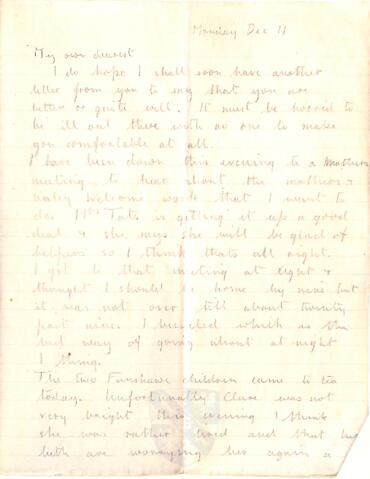 Monday Dec 11
My own dearest
I do hope I shall soon have another
letter from you to say that you are
better or quite well. It must be horrid to
be ill out there with no one to make
you comfortable at all.
I have been down this evening to a Mothers
meeting to hear about the mothers &
welcome work that I want to
do. Mrs is getting it up a good
deal & she says she will be glad of
helpers so I think thats all right.
I got to that meeting at eight &
thought I should be home by nine but
it was not over till about twenty
past nine. I bicycled which is the
best way of going about at night
I think.
The two Fanshawe children came to tea
today. Unfortunately Clare was not
very bright this evening I think
she was rather tired and that her
teeth are worrying her again a